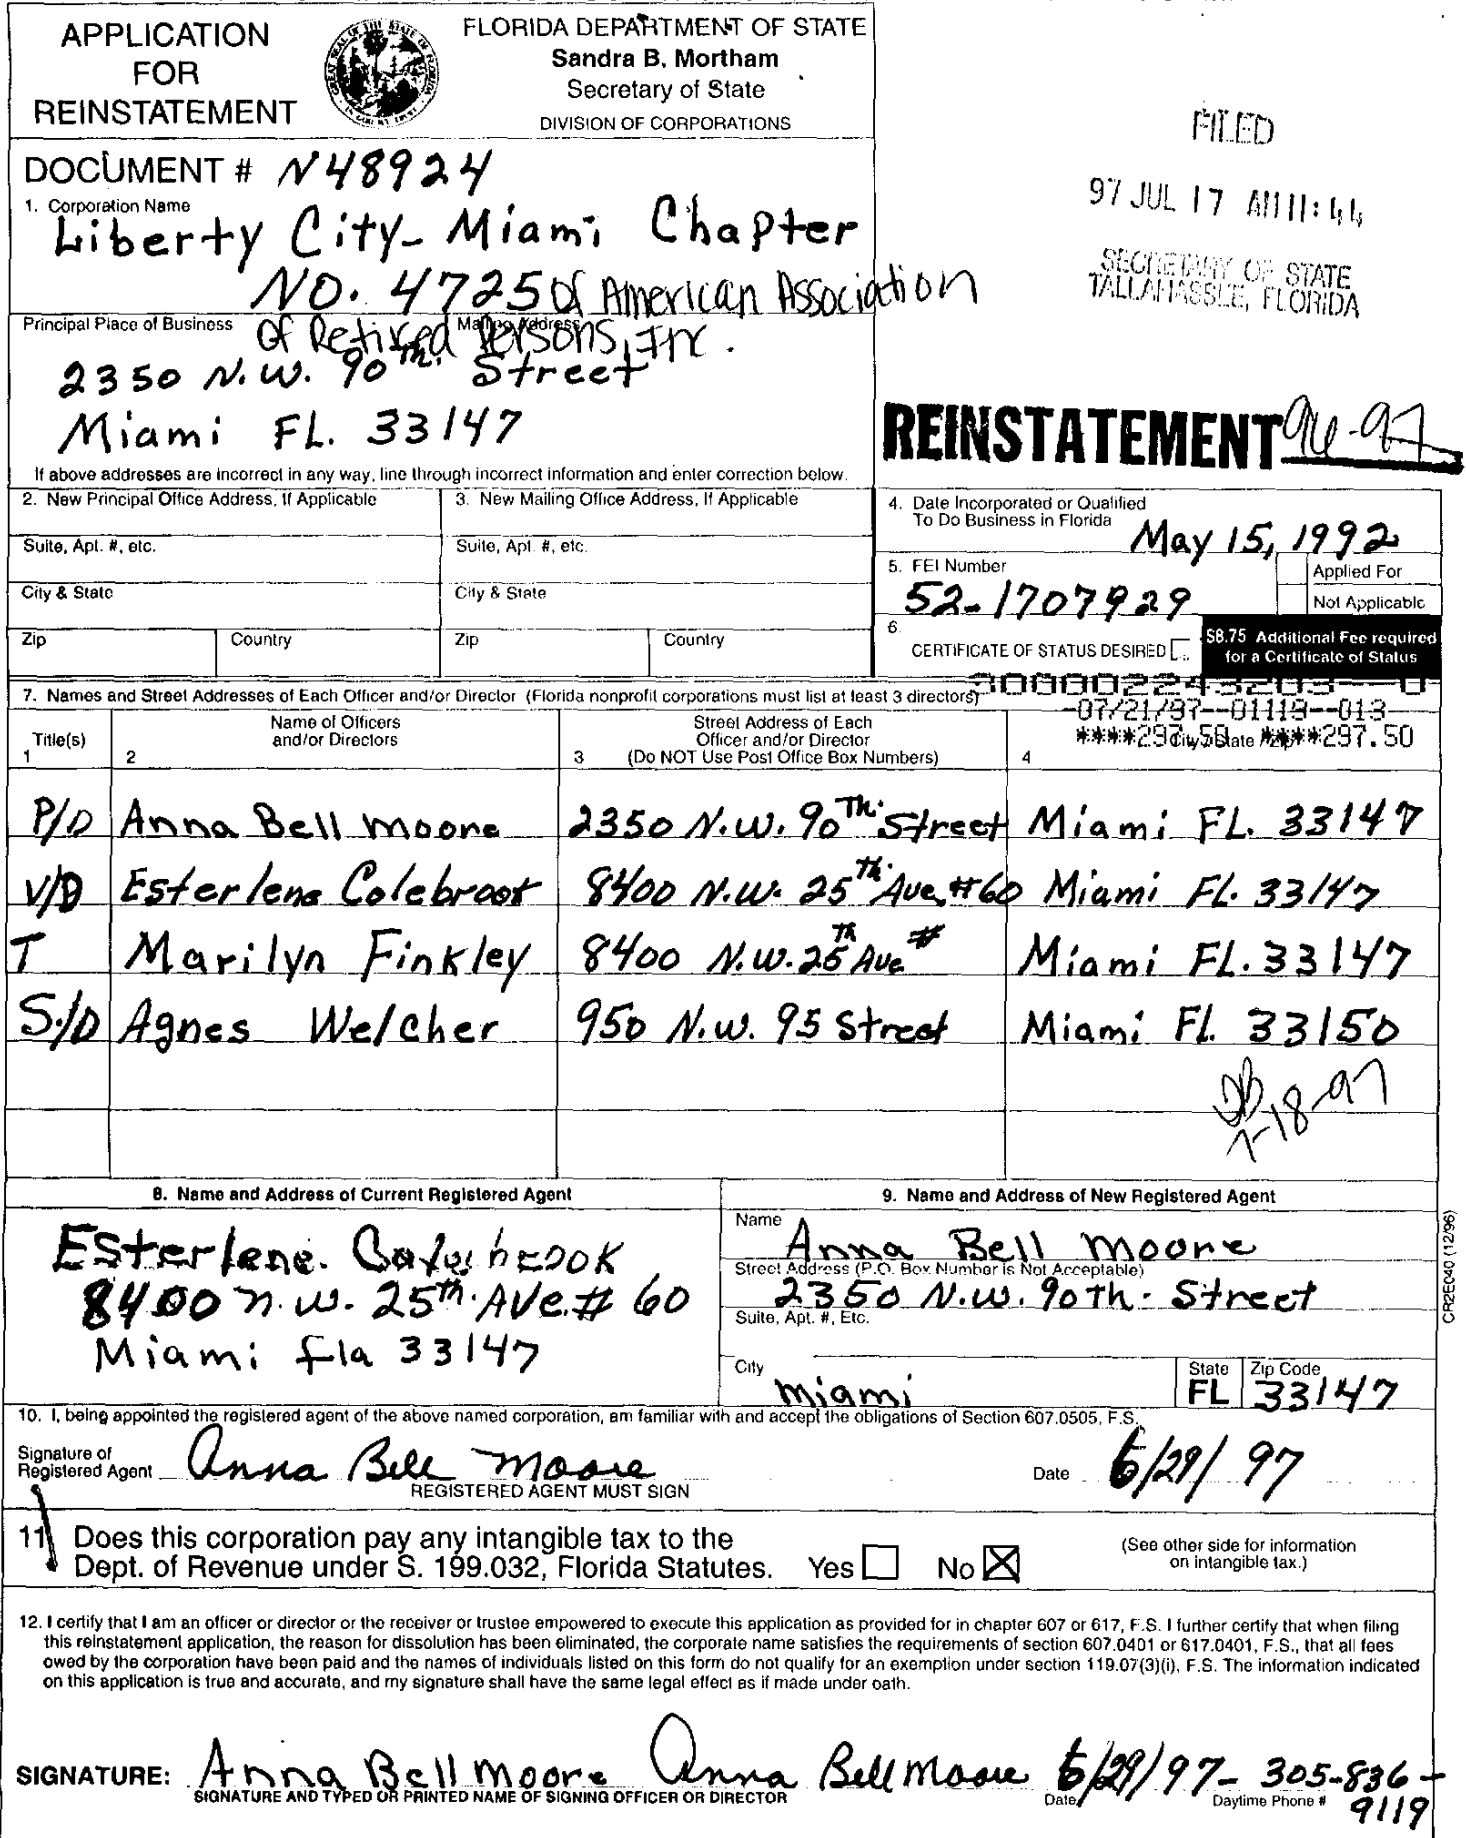 APPLICATION
FOR
REINSTATEMENT
FLORIDA DEPARTMENT OF STATE
Sandra B. Mortham
Secretary of State
DIVISION OF CORPORATIONS
FILED
97 JUL 17 AM 11:44
SECRETARY OF STATE
TALLAHASSEE, FLORIDA
DOCUMENT # N48924
1. Corporation Name
Liberty City- Miami Chapter
NO. 4725 of American Association
of Retired Persons, Inc.
Principal Place of Business
Mailing Address
2350 N.W. 90th. Street
Miami FL. 33147
REINSTATEMENT 96-97
If above addresses are incorrect in any way, line through incorrect information and enter correction below.
2. New Principal Office Address, If Applicable
3. New Mailing Office Address, If Applicable
Suite, Apt. #, etc.
Suite, Apt. #, etc.
City & State
City & State
Zip
Country
Zip
Country
4. Date Incorporated or Qualified
To Do Business in Florida
May 15, 1992
5. FEI Number
52-1707929
Applied For
Not Applicable
6.
CERTIFICATE OF STATUS DESIRED
$8.75 Additional Fee required
for a Certificate of Status
7. Names and Street Addresses of Each Officer and/or Director (Florida nonprofit corporations must list at least 3 directors)
-07/21/97--01119--013
****297.50 ****297.50
Title(s)
1
Name of Officers
and/or Directors
2
Street Address of Each
Officer and/or Director
3 (Do NOT Use Post Office Box Numbers)
City / State / Zip
4
P/D Anna Bell Moore 2350 N.W. 90Th. Street Miami FL. 33147
V/D Esterlene Colebrook 8400 N.W. 25Th. Ave #60 Miami FL. 33147
T Marilyn Finkley 8400 N.W. 25Th Ave # Miami FL. 33147
S./D Agnes Welcher 950 N.W. 95 Street Miami Fl. 33150
7-18-97
8. Name and Address of Current Registered Agent
Esterlene
8400 N.W. 25th. AVE. # 60
Miami fla 33147
9. Name and Address of New Registered Agent
Name
Anna Bell Moore
Street Address (P.O. Box Number is Not Acceptable)
2350 N.W. 90th. Street
Suite, Apt. #, Etc.
City
miami
State
FL
Zip Code
33147
CR2E040 (12/96)
10. I, being appointed the registered agent of the above named corporation, am familiar with and accept the obligations of Section 607.0505, F.S.
Signature of
Registered Agent Anna Bell Moore
REGISTERED AGENT MUST SIGN
Date 6/29/97
11 Does this corporation pay any intangible tax to the
Dept. of Revenue under S. 199.032, Florida Statutes. Yes No
(See other side for information
on intangible tax.)
12. I certify that I am an officer or director or the receiver or trustee empowered to execute this application as provided for in chapter 607 or 617, F.S. I further certify that when filing
this reinstatement application, the reason for dissolution has been eliminated, the corporate name satisfies the requirements of section 607.0401 or 617.0401, F.S., that all fees
owed by the corporation have been paid and the names of individuals listed on this form do not qualify for an exemption under section 119.07(3)(i), F.S. The information indicated
on this application is true and accurate, and my signature shall have the same legal effect as if made under oath.
SIGNATURE: Anna Bell Moore Anna Bell Moore 6/29/97- 305-836-9119
SIGNATURE AND TYPED OR PRINTED NAME OF SIGNING OFFICER OR DIRECTOR
Date
Daytime Phone #